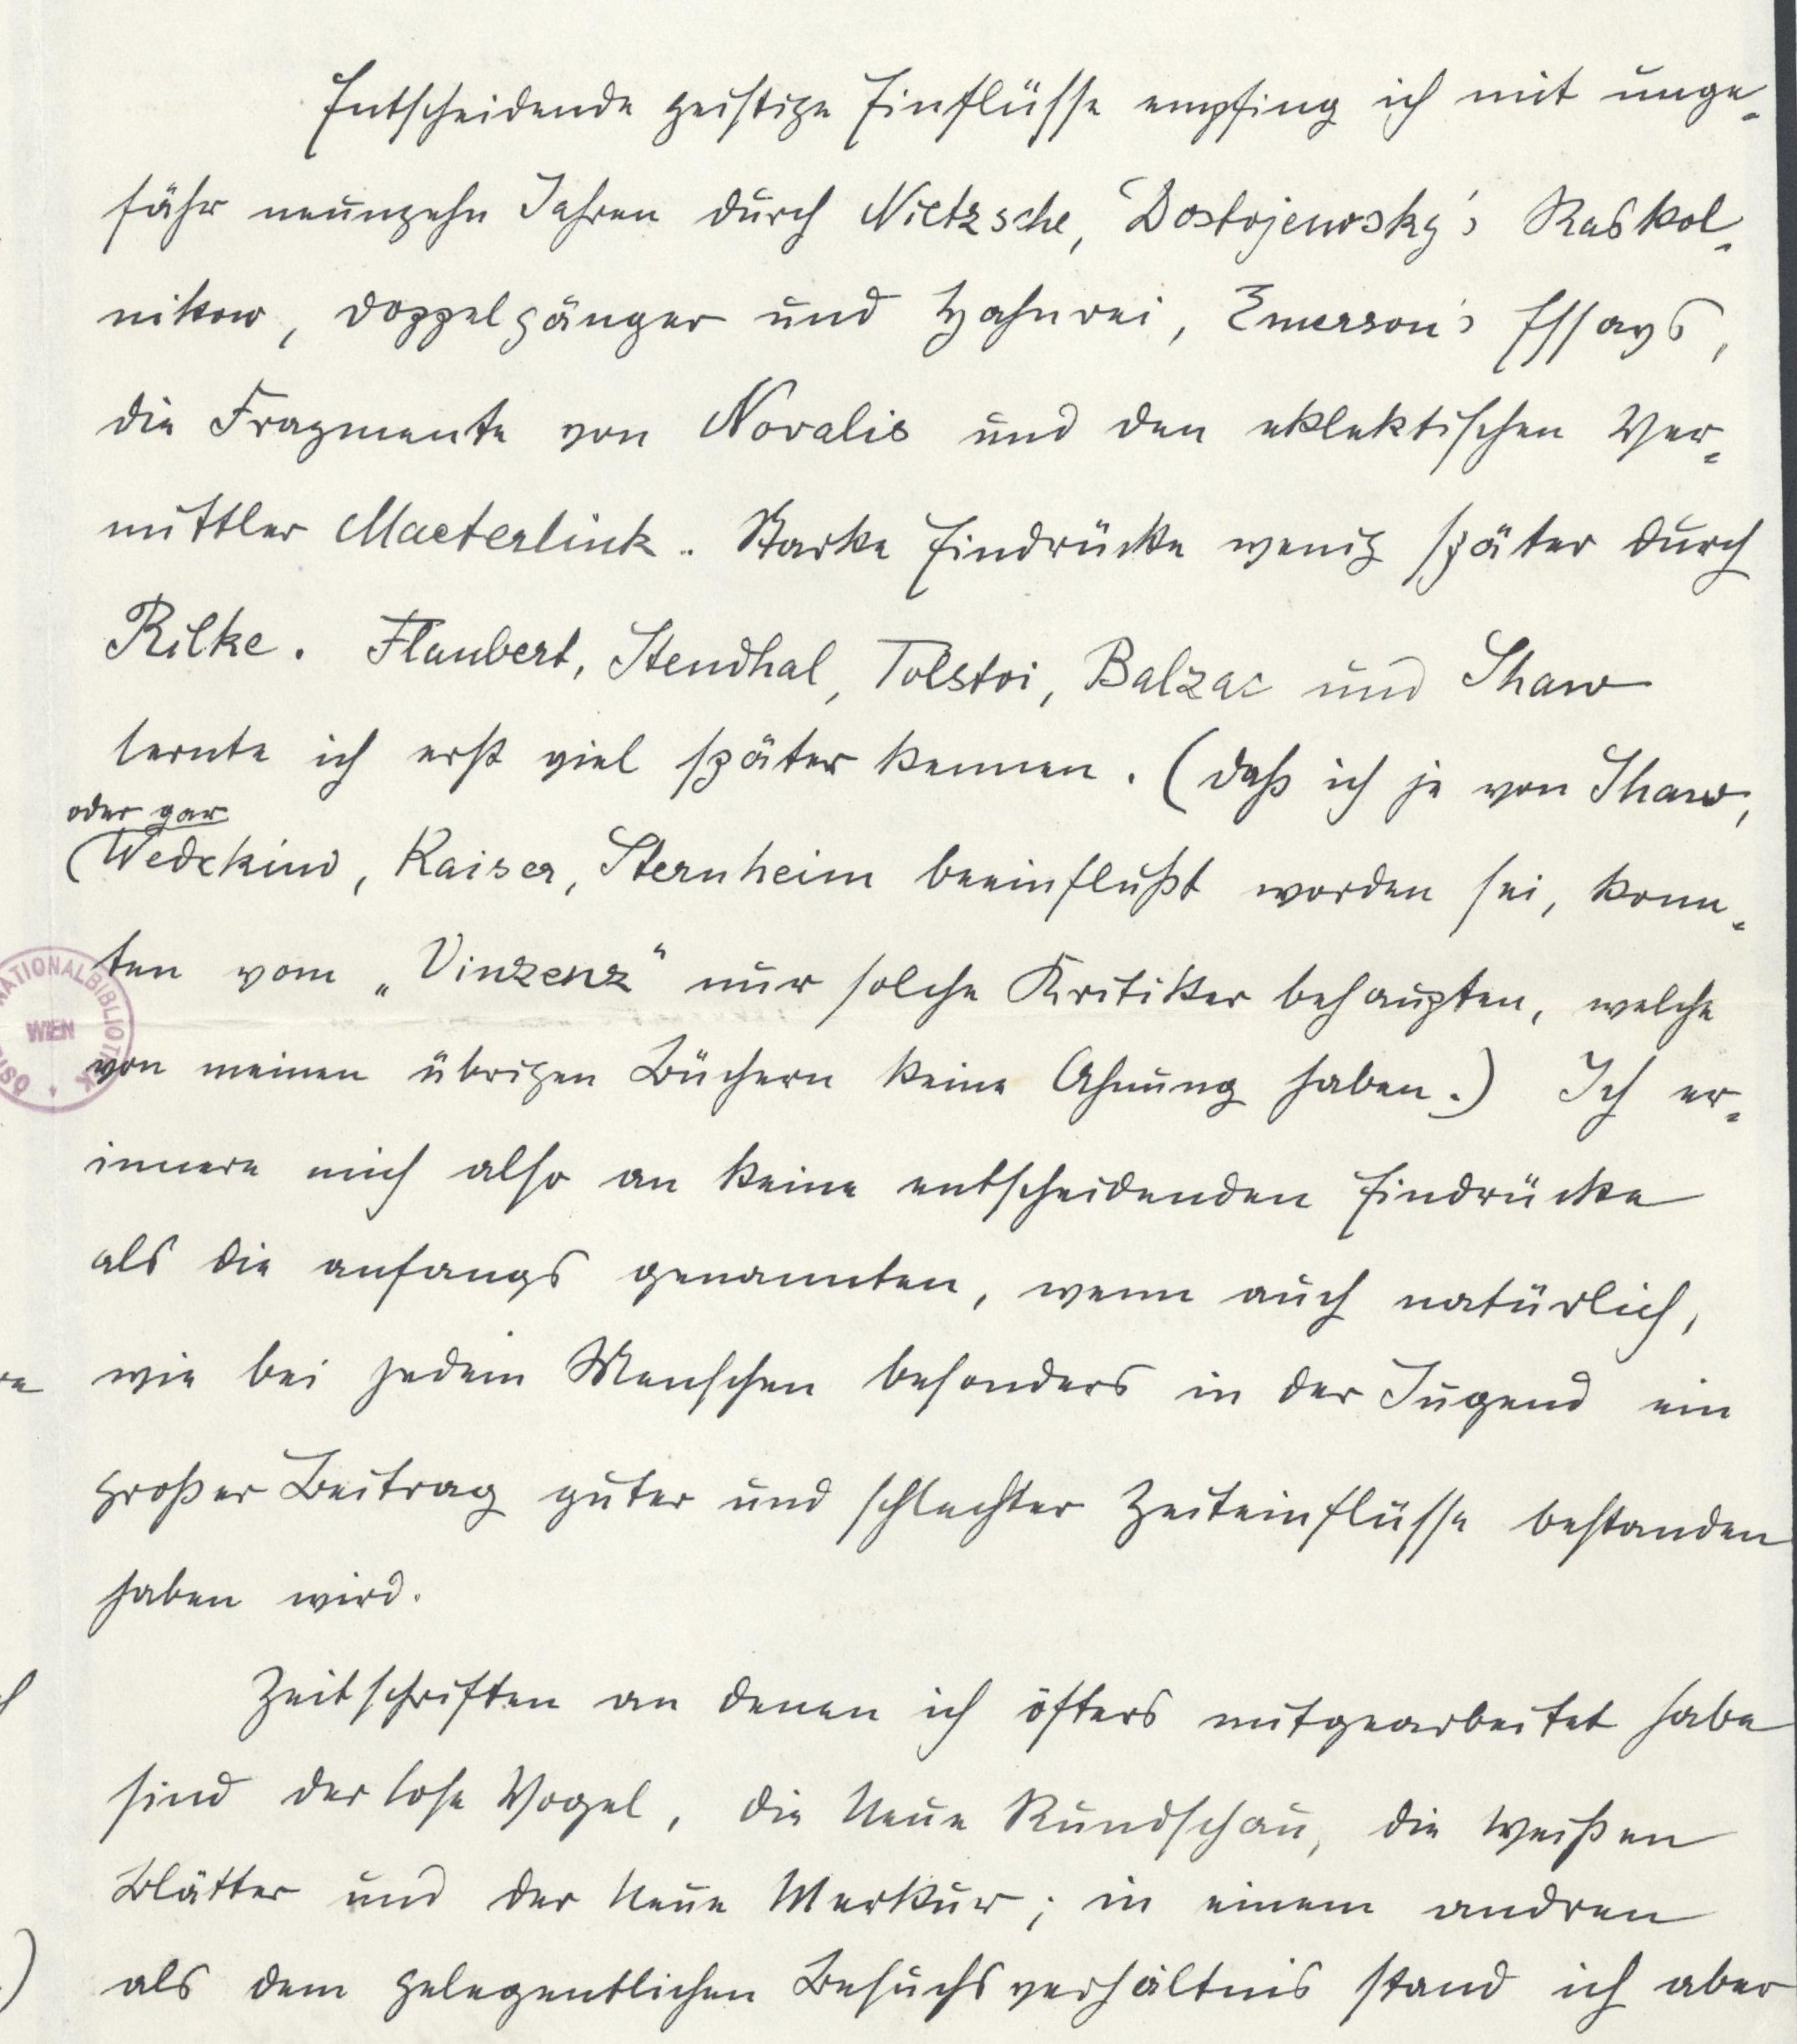 Entscheidende geistige Einflüsse empfing ich mit unge-
fähr neunzehn Jahren durch Nietzsche, Dostojewsky's Raskol-
nikow, Doppelgänger und Hahnrei, Emerson's Essays,
die Fragmente von Novalis und den eklektischen Ver-
mittler Maeterlink. Starke Eindrücke wenig später durch
Rilke. Flaubert, Stendhal, Tolstoi, Balzac und Shaw
lernte ich erst viel später kennen. (Daß ich je von Shaw,
oder gar
Wedekind, Kaiser, Sternheim beeinflußt worden sei, konn-
ten vom „Vinzenz“ nur solche Kritiker behaupten, welche
von meinen übrigen Büchern keine Ahnung haben.) Ich er-
innere mich also an keine entscheidenden Eindrücke
als die anfangs genannten, wenn auch natürlich,
wie bei jedem Menschen besonders in der Jugend ein
großer Beitrag guter und schlechter Zeiteinflüsse bestanden
haben wird.
Zeitschriften an denen ich öfters mitgearbeitet habe
sind der lose Vogel, die Neue Rundschau, die Weißen
Blätter und der Neue Merkur; in einem andren
als dem gelegentlichen Besuchsverhältnis stand ich aber
NATIONALBIBLIOTHEK
WIEN